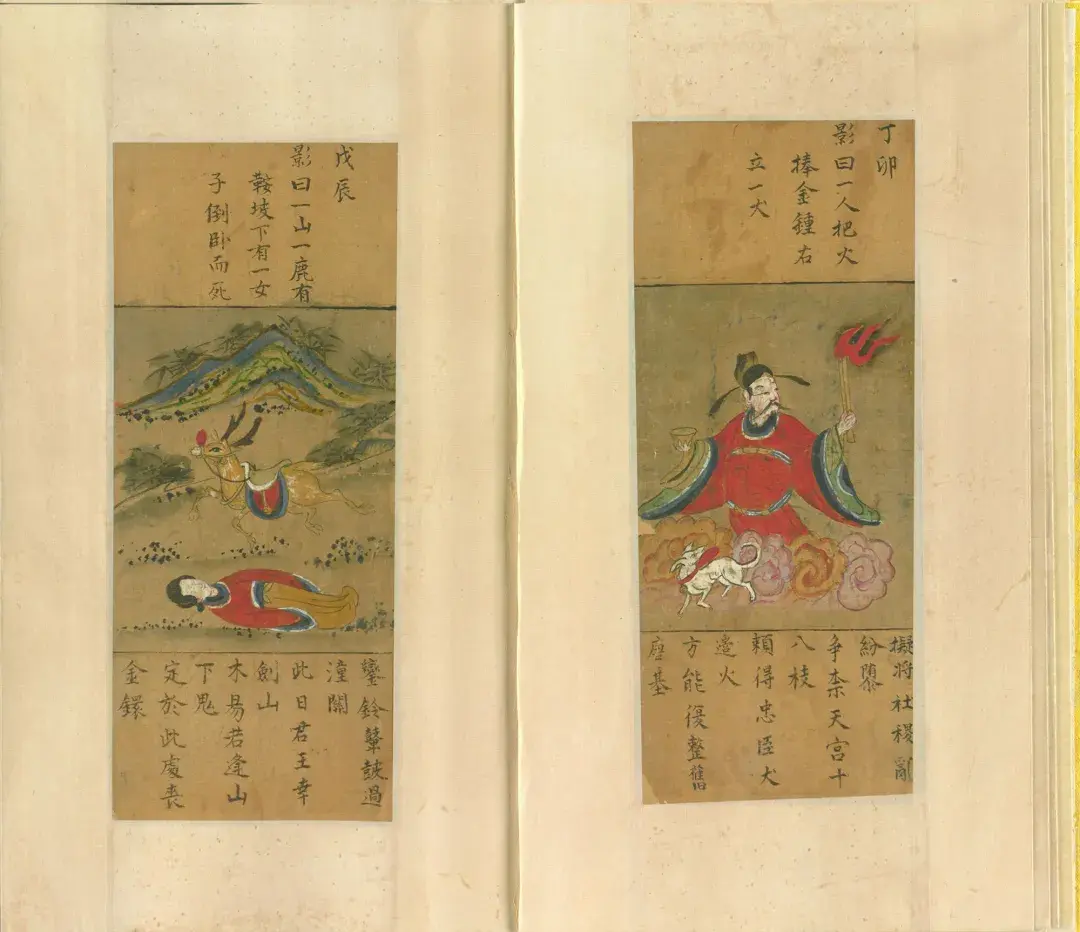 丁卯
影曰一人把火
捧金鍾右
立一犬
擬將社稷亂
紛
爭柰天宫十
八枝
賴得忠臣犬
邉火
方能復整舊
唐基
戊辰
影曰一山一鹿有
鞍坡下有一女
子倒卧而死
鑾鈴鼙鼓過
潼關
此日君王幸
劍山
木易若逢山
下鬼
定於此處喪
金鐶